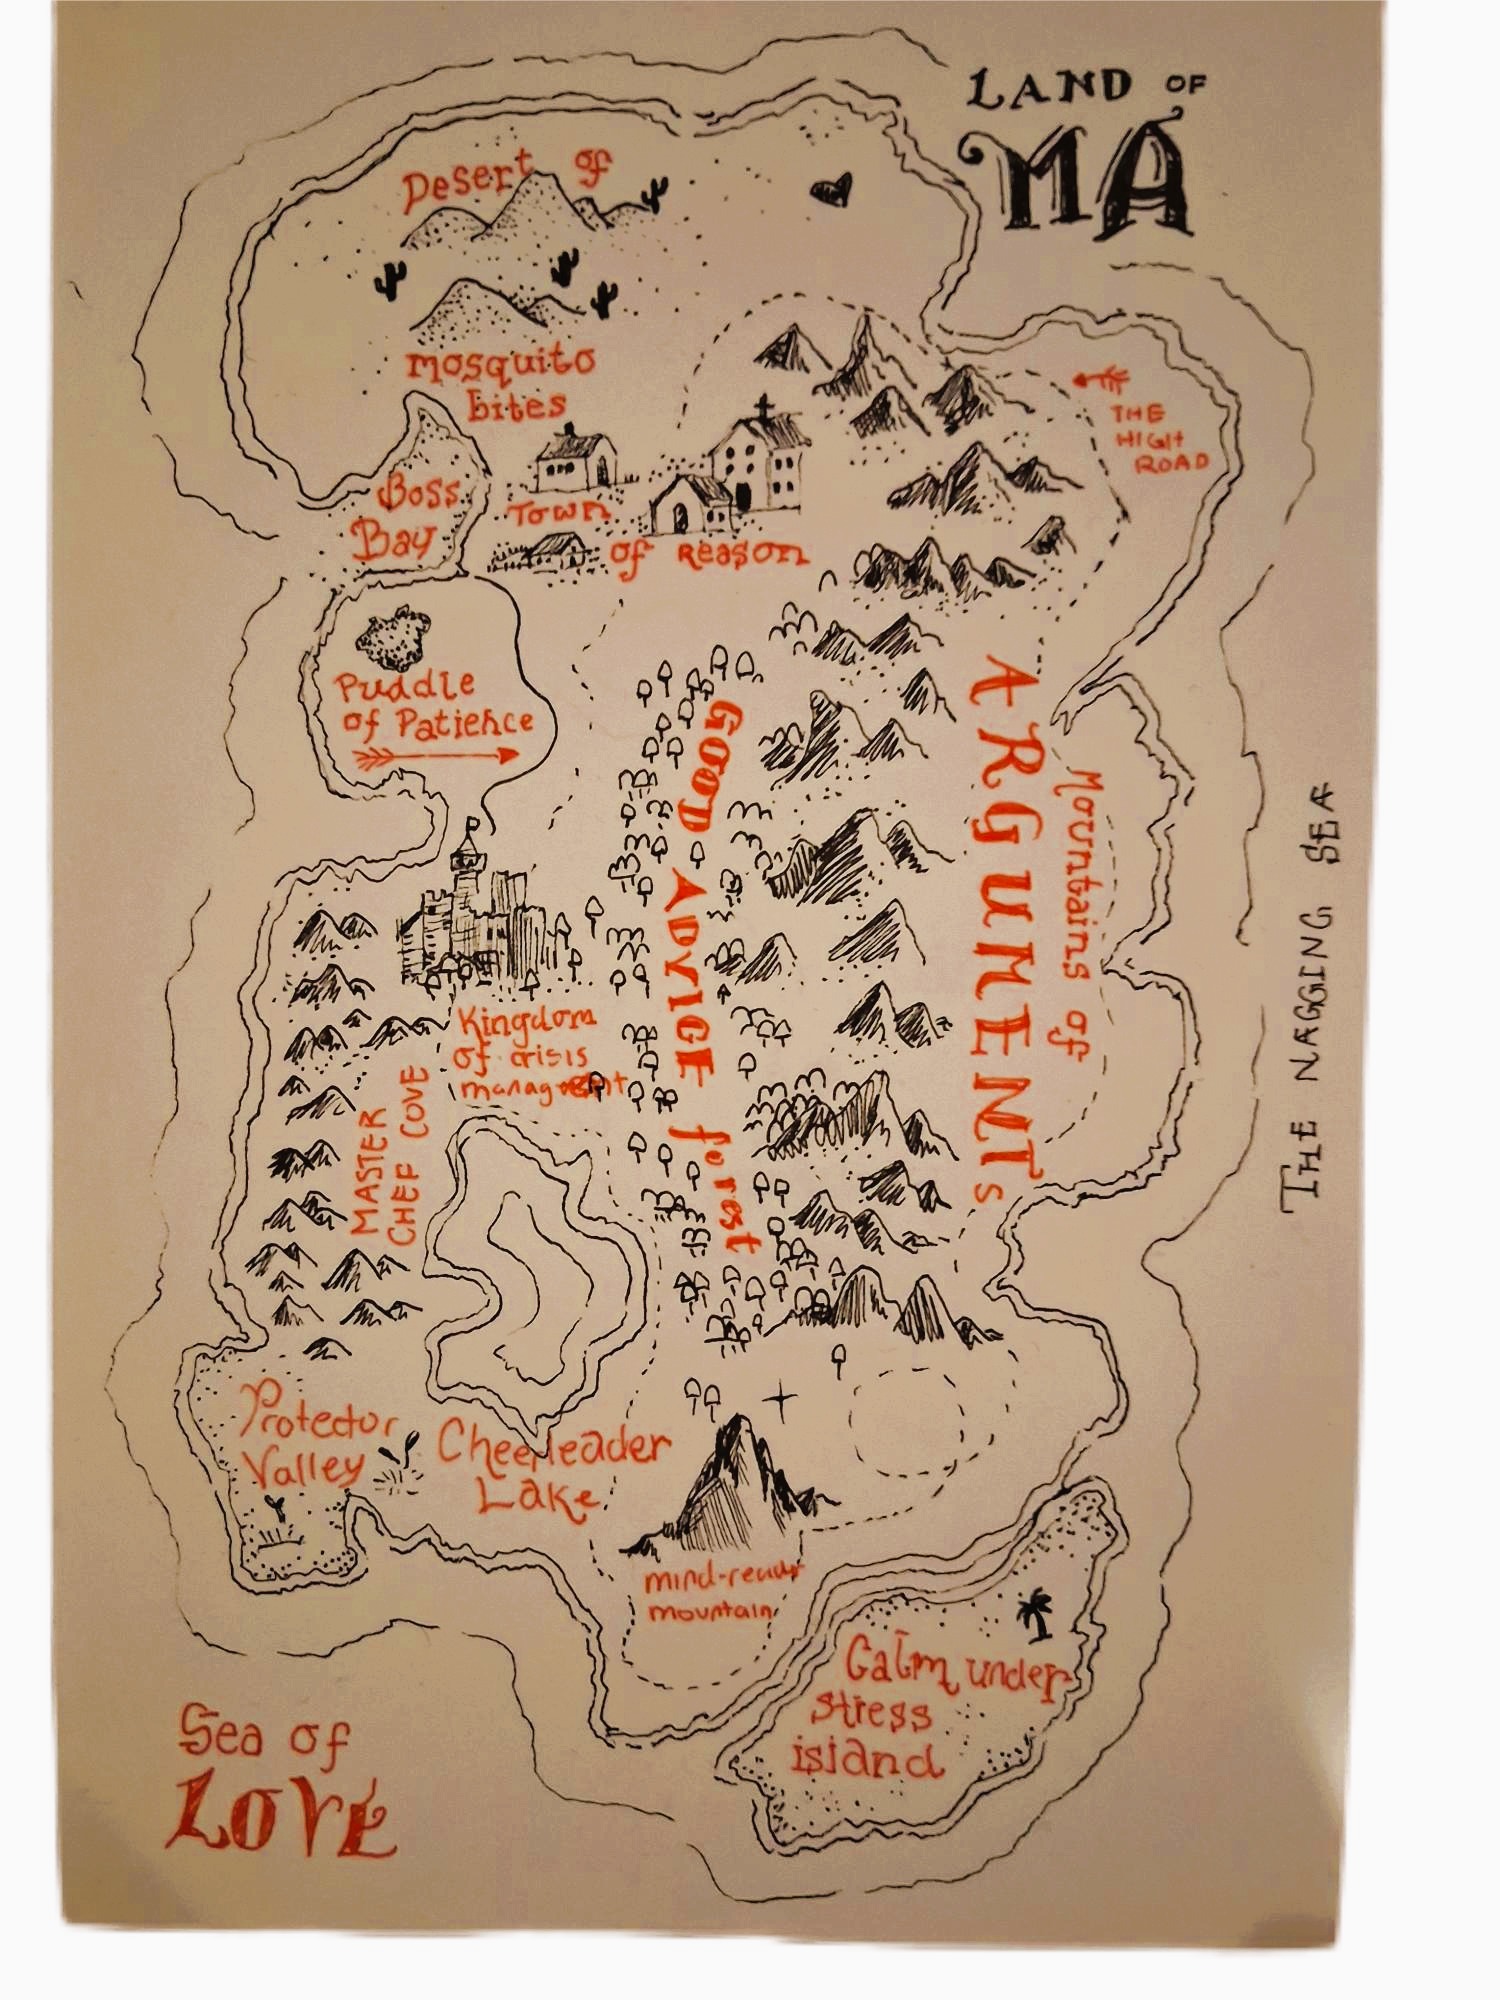 LAND OF
MA
Desert of
mosquito
bites
THE
HIGH
ROAD
Boss
Bay
Town
of Reason
Puddle
of Patience
ARGUMENTS
Mountains of
GOOD ADVICE forest
THE NAGGING SEA
Kingdom
of crisis
managment
MASTER
CHEF COVE
Protector
Valley
Cheerleader
Lake
mind-reader
mountain
Calm under
stress
island
Sea of
LOVE